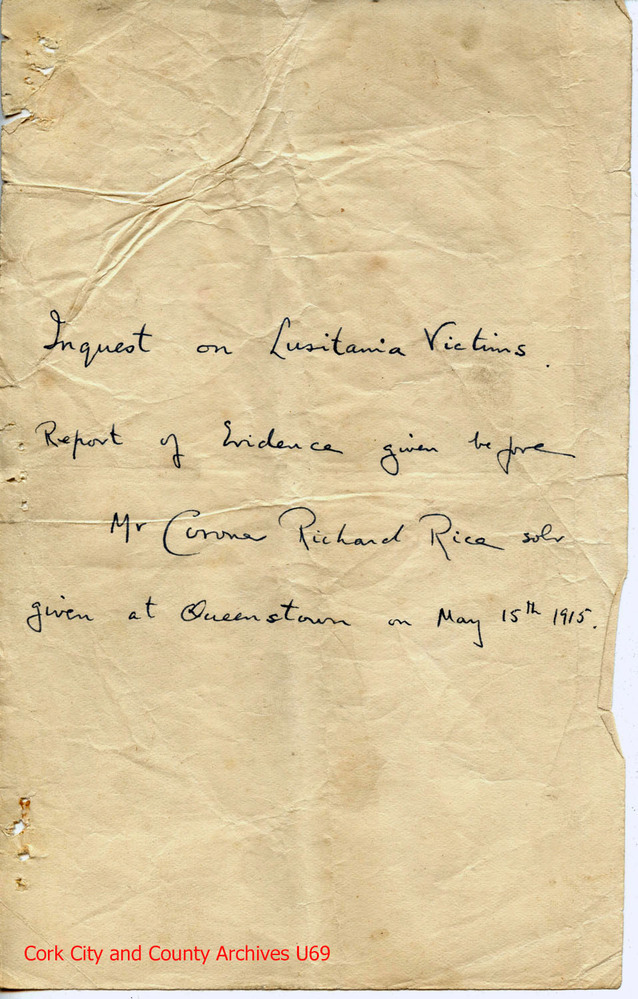 Inquest on Lusitania Victims.
Report of Evidence given before
Mr Coroner Richard Rice solr
given at Queenstown on May 15th 1915.
Cork City and County Archives U69